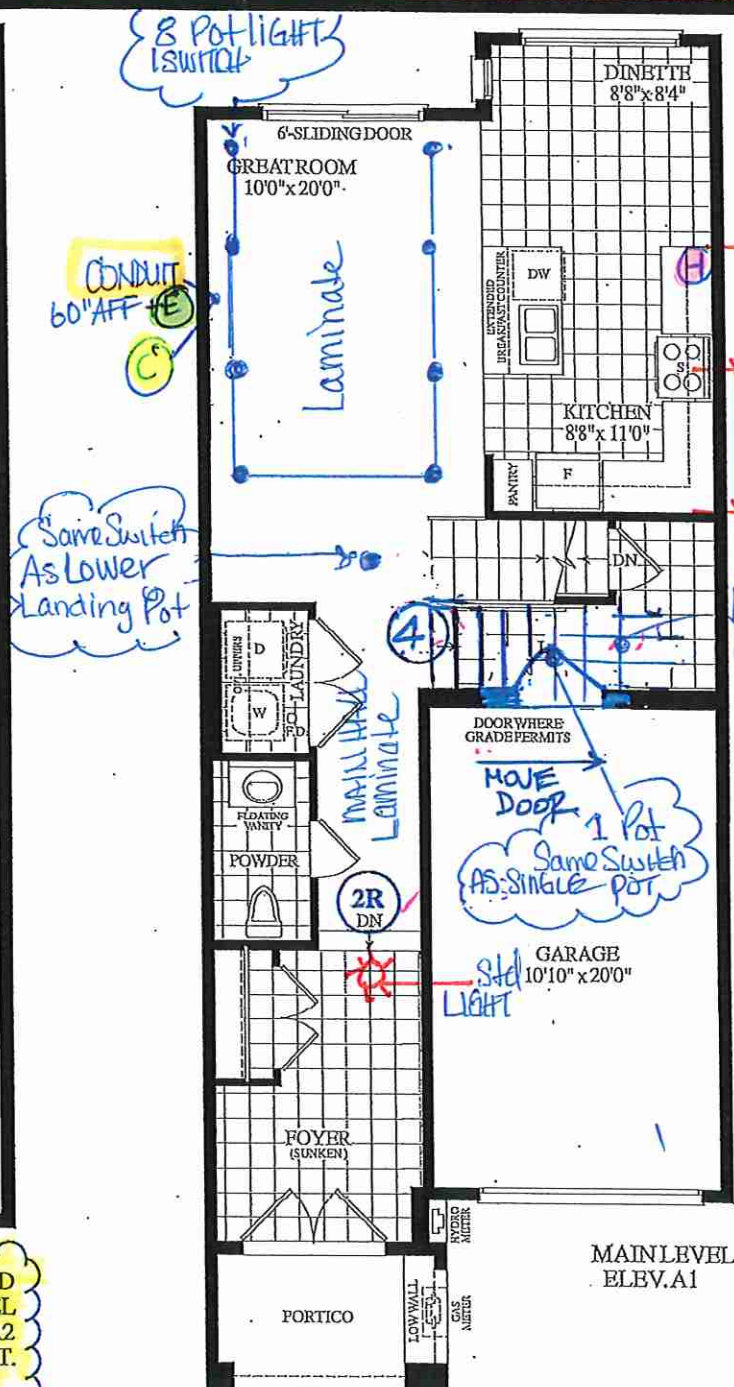 8 Potlight
1 SWITCH
DINETTE
8'8"x8'4"
6'-SLIDING DOOR
GREATROOM
10'0"x20'0"
Laminate
CONDUIT
60"AFF + E
C
H
EXTENDED
BREAKFAST COUNTER
DW
S
KITCHEN
8'8"x11'0"
PANTRY
F
Same Switch
As Lower
Landing Pot
DN
4
D
W
LAUNDRY
F.D.
MAIN HALL
Laminate
DOOR WHERE
GRADE PERMITS
MOVE
DOOR
1 Pot
Same Switch
AS SINGLE POT
FLOATING
VANITY
POWDER
2R
DN
Std
LIGHT
GARAGE
10'10"x20'0"
FOYER
(SUNKEN)
HYDRO
METER
MAIN LEVEL
ELEV. A1
PORTICO
LOW WALL
GAS
METER
D
EL
A2
T.